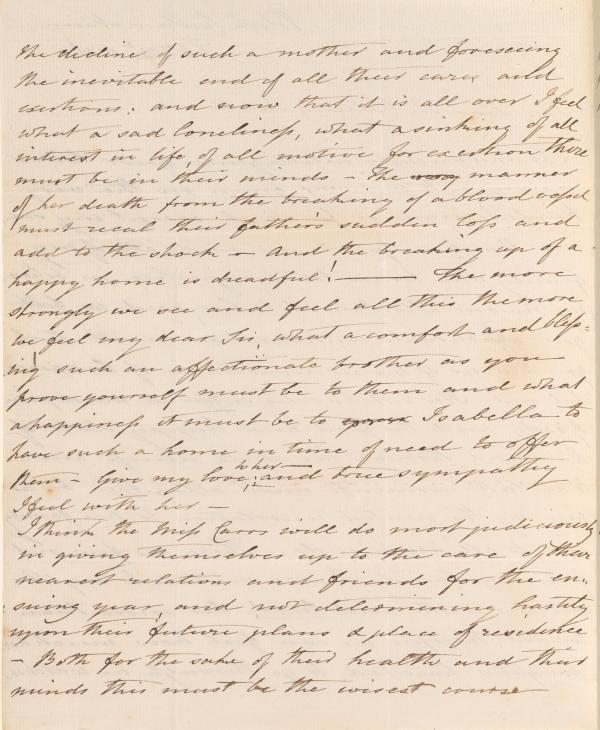 the decline of such a mother and foreseeing
the inevitable end of all their cares and
exertions: and now that it is all over I feel
what a sad loneliness, what a sinking of all
interest in life, of all motive for exertion there
must be in their minds – The manner
of her death from the breaking of a blood vessel
must recal their father's sudden loss and
add to the shock – And the breaking up of a
happy home is dreadful! — The more
strongly we see and feel all this the more
we feel my dear Sir, what a comfort and bless=
ing such an affectionate brother as you
prove yourself must be to them and what
a happiness it must be to Isabella to
have such a home in time of need to offer
them – Give my love to her and true sympathy
I feel with her –
I think the Miss Carrs will do most judiciously
in giving themselves up to the care of their
nearest relations and friends for the en-
suing year, and not determining hastily
upon their future plans & place of residence
– Both for the sake of their health and their
minds this must be the wisest course